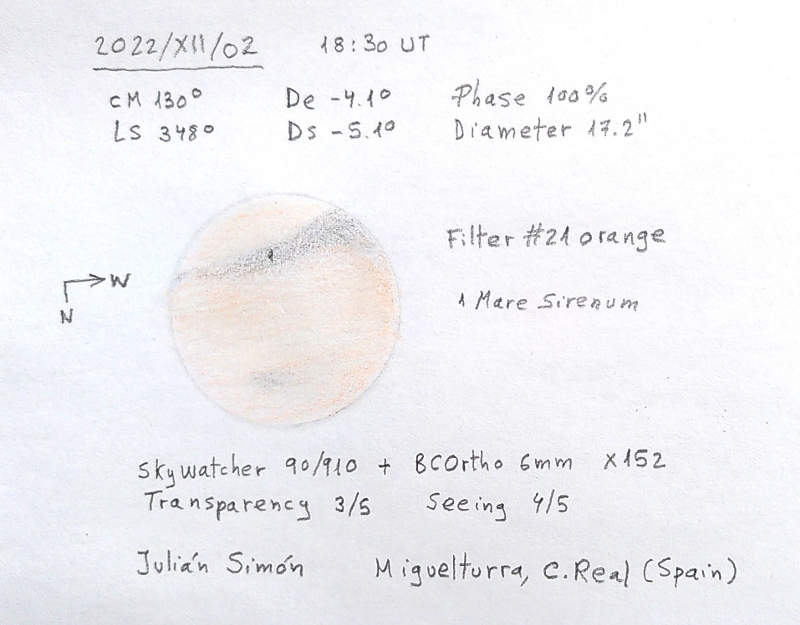 2022/XII/02 18:30 UT
CM 130° De -4.1° Phase 100%
LS 348° Ds -5.1° Diameter 17.2"
Filter #21 orange
1
W
1 Mare Sirenum
N
Skywatcher 90/910 + BCOrtho 6mm X152
Transparency 3/5 Seeing 4/5
Julián Simón Miguelturra, C.Real (Spain)